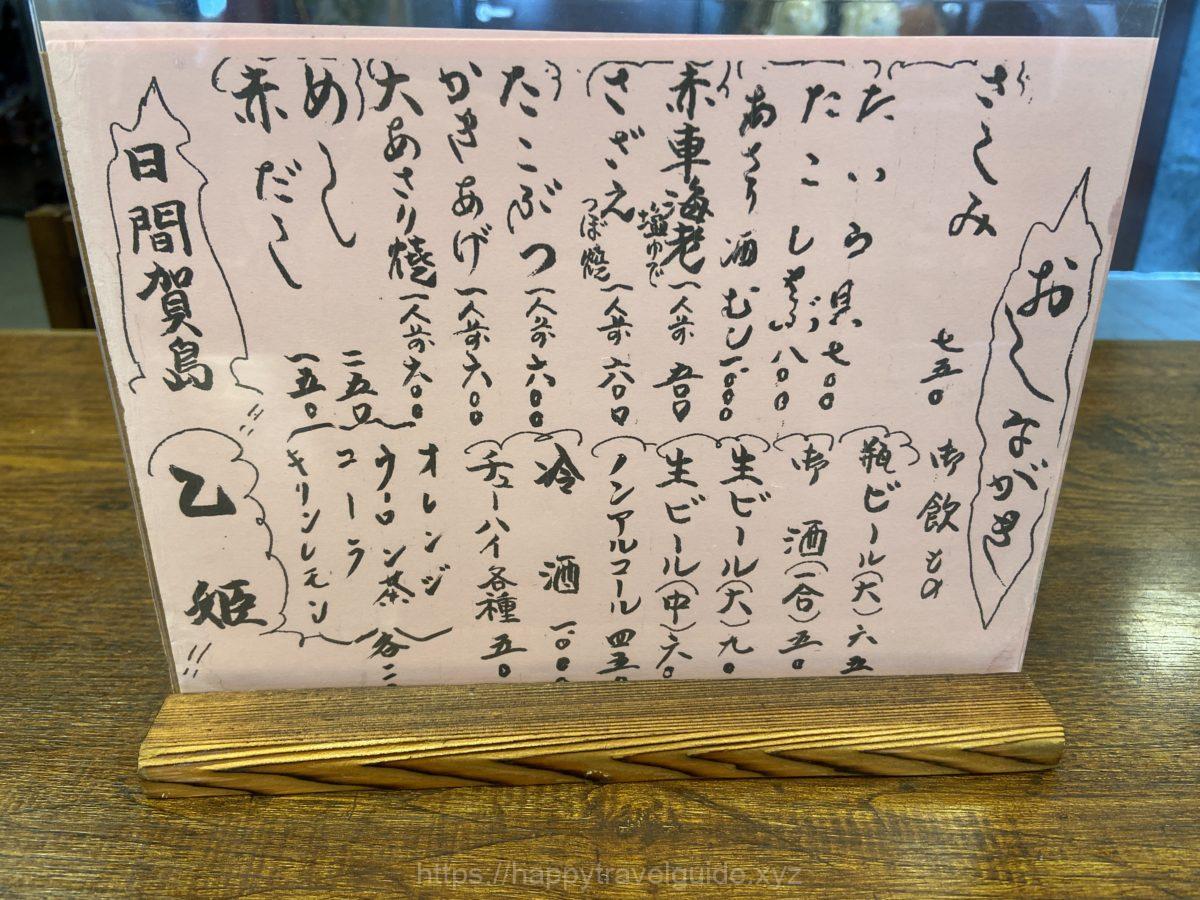 おしながき
さしみ 七五〇
たいら貝 七〇〇
たこしゃぶ 八〇〇
あさり酒むし 一〇〇〇
赤車海老 塩ゆで 一人前 五〇〇
さざえ つぼ焼 一人前 六〇〇
たこぶつ 一人前 六〇〇
かきあげ 一人前 六〇〇
大あさり焼 一人前 六〇〇
めし 二五〇
赤だし 一五〇
御飲もの
瓶ビール(大) 六五
御酒(一合) 五〇
生ビール(大) 九〇
生ビール(中) 六〇
ノンアルコール 四五
冷酒 一〇〇
チューハイ各種 五〇
オレンジ
ウーロン茶 各二
コーラ
キリンレモン
日間賀島
乙姫
https://happytravelguide.xyz